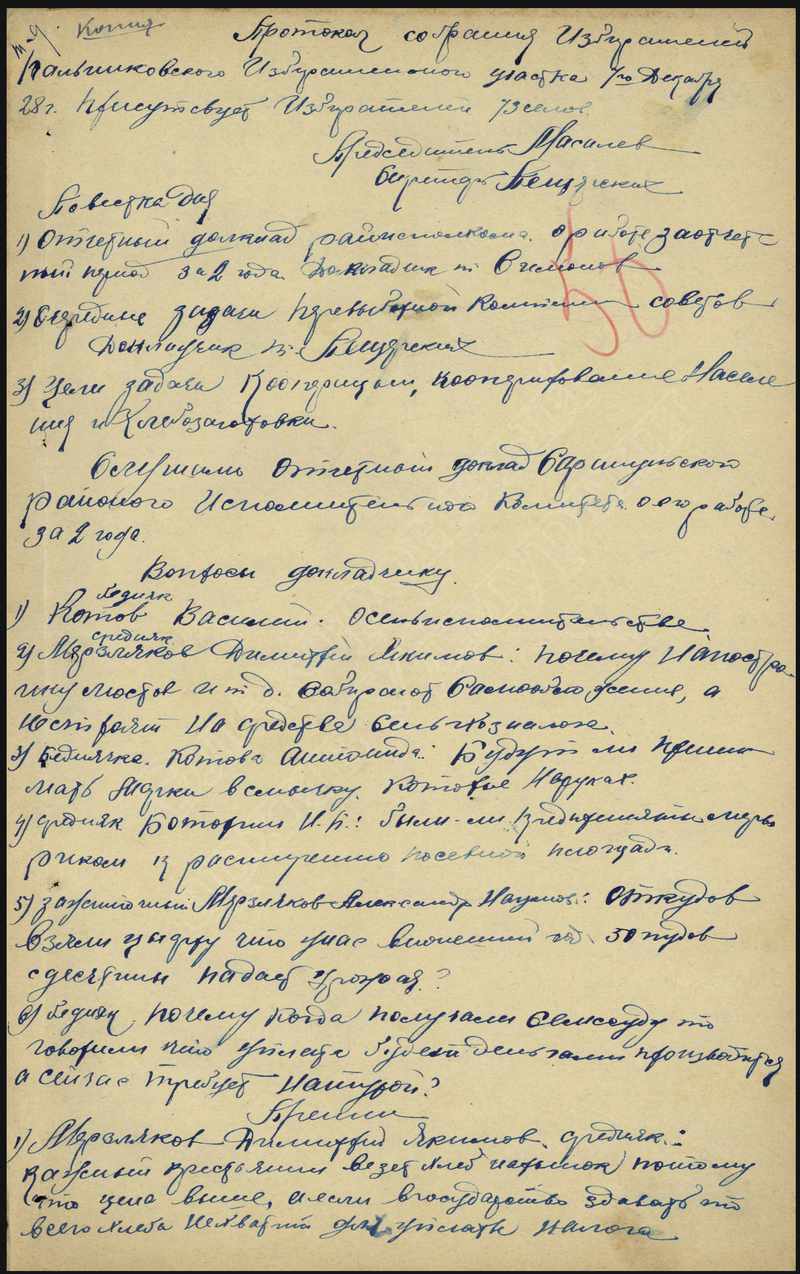 Копия
Протокол собрания Избирателей
Пальниковского Избирательного участка 7го Декабря
28 г. Присутсвует Избирателей 73 челов.
Председатель Масалев
Секретарь Пещерских
Повестка дня
1) Отчетный доклад райисполкома о работе за отчет-
ный период за 2 года. Докладчик т. Симонов
2) Очередные задачи перевыборной Компании советов
Докладчик т. Пещерских
3) Цели задачи Кооперации, кооперирование Населе
ния и Хлебозаготовки.
Слушали отчетный доклад Сарапульского
районого Исполнительного Комитета о его работе
за 2 года.
Вопросы докладчику.
бедняк
1) Котов Василий. О сельисполнительстве
средняк
2) Мерзляков Димитрий Якимов: почему На постро-
ику мостов и т д. собирают Самообложение, а
не строят на средства сельхозналога.
3) Беднячка Котова : Будут ли прини
мать в смычку которые На руках.
4) средняк И. П.: были-ли предприняты меры
риком к расширению посевной площади.
5) зажиточный Мерзляков Александр Наумов: Откудов
взяли цыфру что у нас в нонешний год 50 пудов
с десятины падает урожая?
6) бедняк почему когда получали семссуду то
говорили что уплата будет деньгами производится
а сейчас требует Натурой?
Прении
1) Мерзляков Димитрий Якимов средняк:
каждый крестьянин везет хлеб на рынок потому
что цена выше, а если в государство здавать то
всего хлеба не хватит для уплаты Налога
50